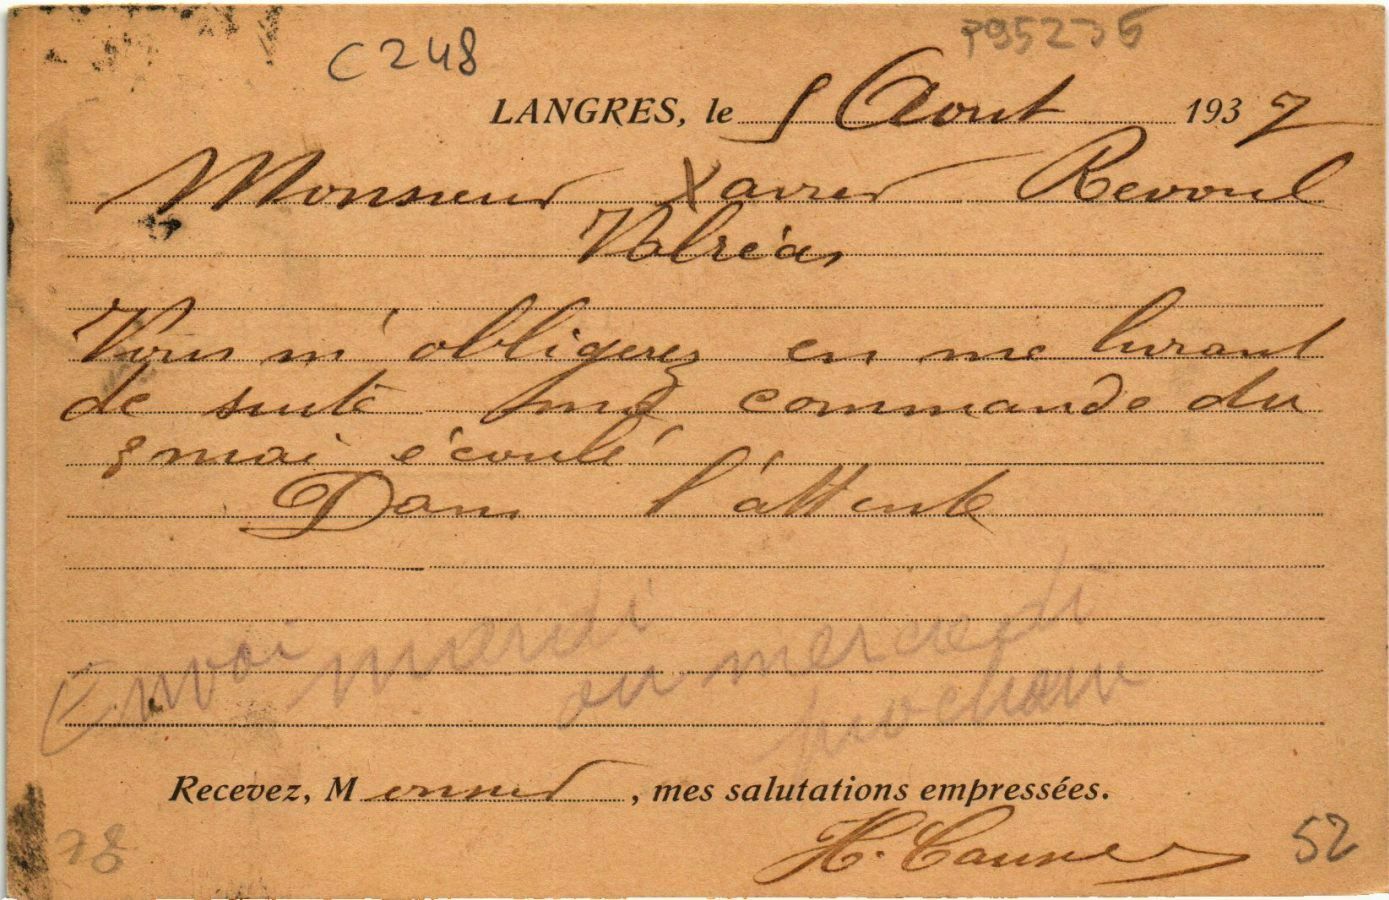 C248
P95235
LANGRES, le 5 Aout 1937
Monsieur Xavier Revoul
Valréas
Vous m'obligerez en me livrant
de suite ma commande du
8 mai écoulé
Dans l'attente
Envoi mardi
ou mercredi
prochain
Recevez, Monsieur, mes salutations empressées.
H.
78
52